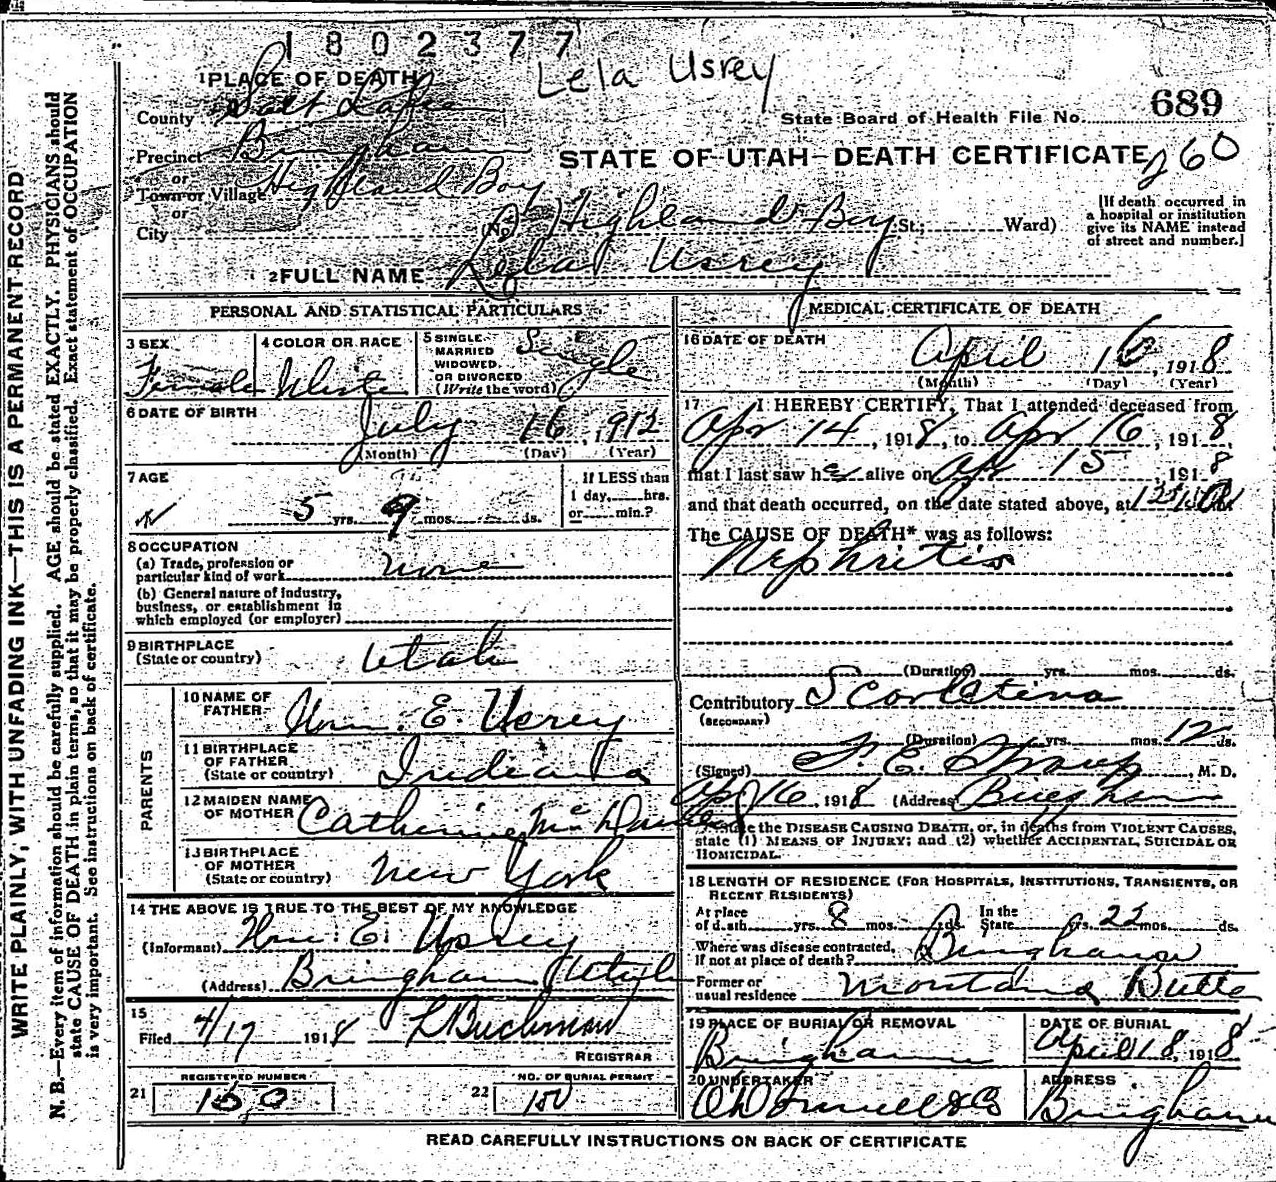 1802377
Lela Usrey
1 PLACE OF DEATH
County Salt Lake
State Board of Health File No. 689
Precinct Bingham
STATE OF UTAH—DEATH CERTIFICATE 260
or
Town or Village Highland Boy
or
City (No. Highland Boy St.; Ward)
[If death occurred in a hospital or institution give its NAME instead of street and number.]
2 FULL NAME Lela Usrey
PERSONAL AND STATISTICAL PARTICULARS
3 SEX Female
4 COLOR OR RACE White
5 SINGLE, MARRIED, WIDOWED, OR DIVORCED (Write the word) Single
6 DATE OF BIRTH July 16, 1912
(Month) (Day) (Year)
7 AGE
5 yrs. 9 mos. ds.
If LESS than 1 day, hrs. or min.?
8 OCCUPATION
(a) Trade, profession or particular kind of work none
(b) General nature of industry, business, or establishment in which employed (or employer)
9 BIRTHPLACE (State or country) Utah
PARENTS
10 NAME OF FATHER Wm. E. Usrey
11 BIRTHPLACE OF FATHER (State or country) Indiana
12 MAIDEN NAME OF MOTHER Catherine
13 BIRTHPLACE OF MOTHER (State or country) New York
14 THE ABOVE IS TRUE TO THE BEST OF MY KNOWLEDGE
(Informant) Wm. E. Usrey
(Address) Bingham Utah
15
Filed 4/17 1918 L Buchman
REGISTRAR
REGISTERED NUMBER
21 150
NO. OF BURIAL PERMIT
22 150
MEDICAL CERTIFICATE OF DEATH
16 DATE OF DEATH
April 16, 1918
(Month) (Day) (Year)
17 I HEREBY CERTIFY, That I attended deceased from
Apr 14, 1918, to Apr 16, 1918,
that I last saw her alive on Apr 15 1918
and that death occurred, on the date stated above, at
The CAUSE OF DEATH* was as follows:
Nephritis
(Duration) yrs. mos. ds.
Contributory Scarletina
(SECONDARY)
(Duration) yrs. mos. 12 ds.
(Signed) F. E. Straup, M. D.
Apr 16, 1918 (Address) Bingham
* State the DISEASE CAUSING DEATH, or, in deaths from VIOLENT CAUSES, state (1) MEANS OF INJURY; and (2) whether ACCIDENTAL, SUICIDAL OR HOMICIDAL.
18 LENGTH OF RESIDENCE (FOR HOSPITALS, INSTITUTIONS, TRANSIENTS, OR RECENT RESIDENTS)
At place of death yrs. 8 mos. ds. In the State yrs. 22 mos. ds.
Where was disease contracted, if not at place of death? Bingham
Former or usual residence Montana Butte
19 PLACE OF BURIAL OR REMOVAL
Bingham
DATE OF BURIAL
April 18, 1918
20 UNDERTAKER
ADDRESS
Bingham
READ CAREFULLY INSTRUCTIONS ON BACK OF CERTIFICATE
WRITE PLAINLY, WITH UNFADING INK—THIS IS A PERMANENT RECORD
N. B.—Every item of information should be carefully supplied. AGE should be stated EXACTLY. PHYSICIANS should
state CAUSE OF DEATH in plain terms, so that it may be properly classified. Exact statement of OCCUPATION
is very important. See instructions on back of certificate.